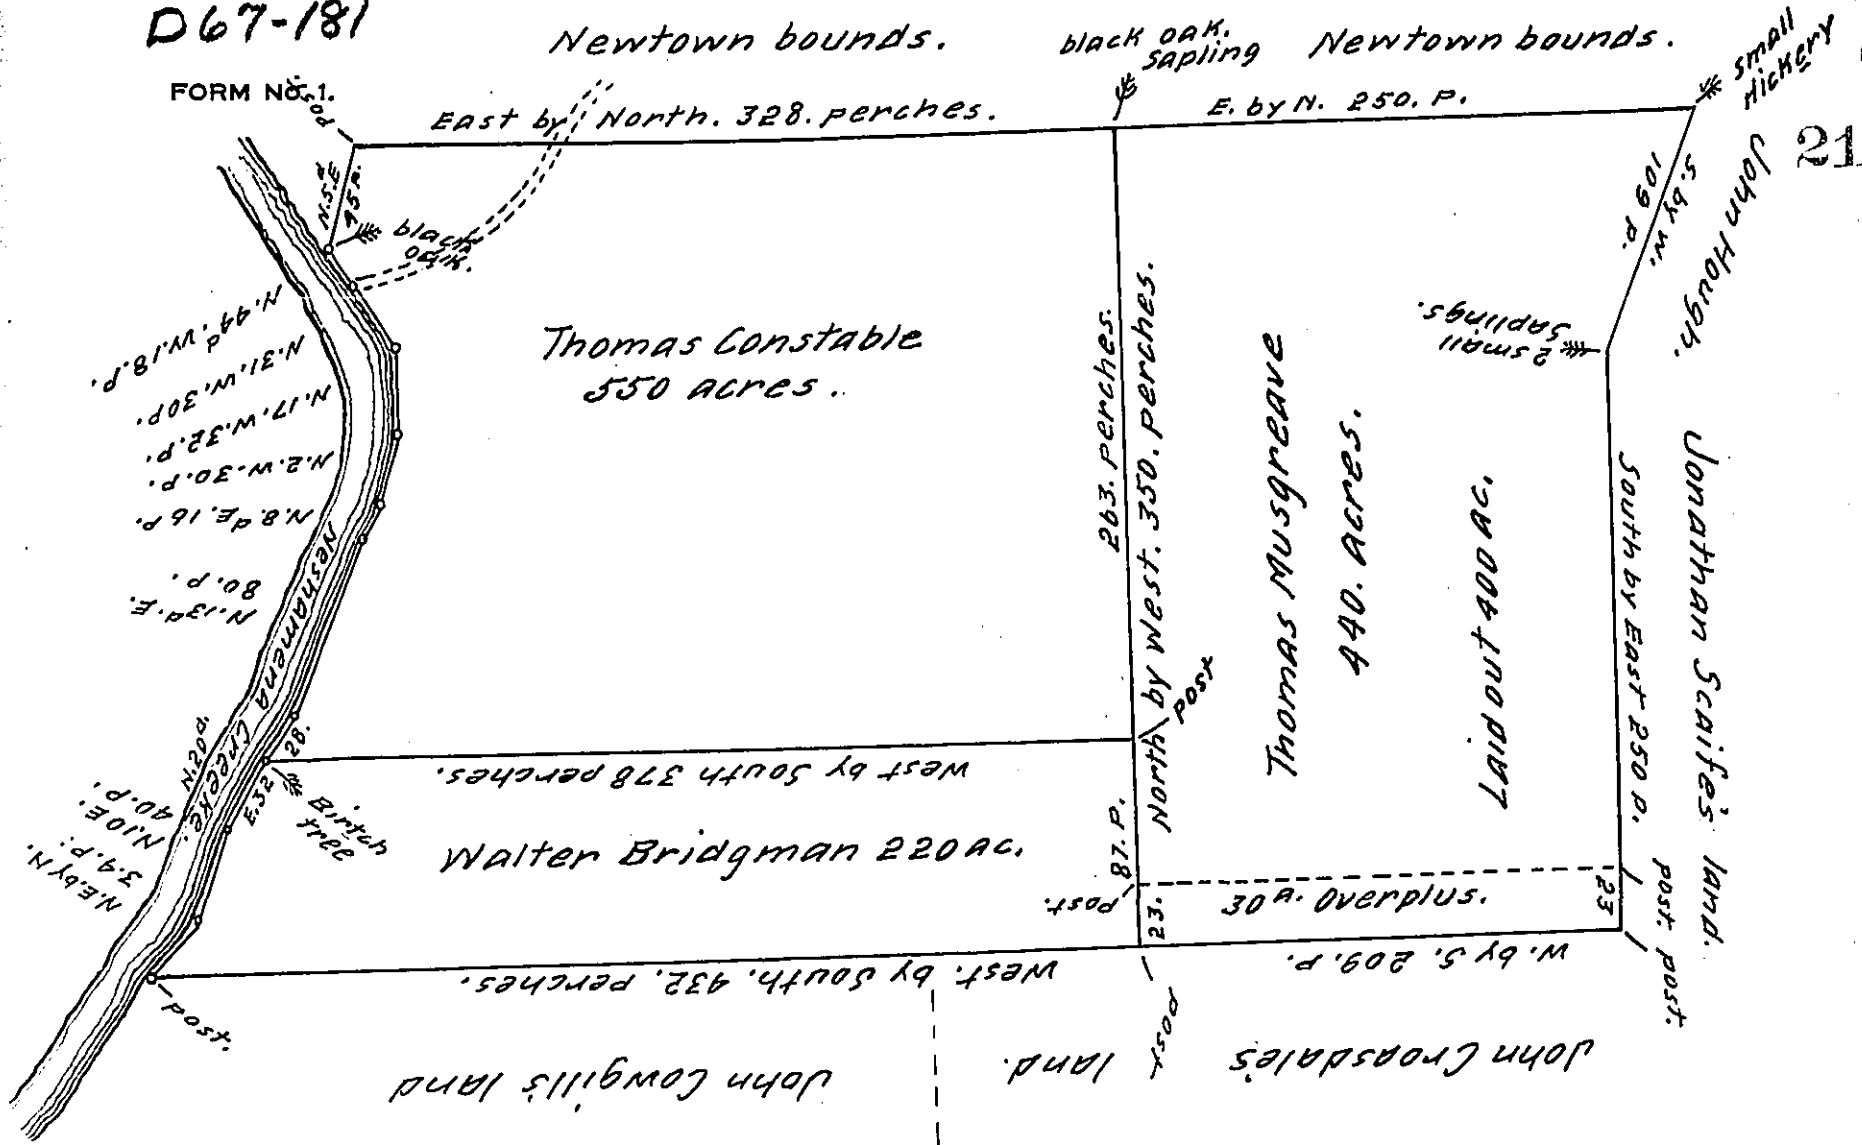 D67-181
FORM No. 1.
21
Newtown bounds.
black oak.
Sapling
Newtown bounds.
small
Hickery
post
East by North. 328. perches.
E. by N. 250. P.
N.5.d E
45 P.
black
oak.
S. by W.
109 P.
John Hough.
2 small
Saplings.
Thomas Constable
550 acres.
263. perches.
North by West. 350. perches.
Thomas Musgreave
440. Acres.
Laid out 400 Ac.
South by East 250 P.
Jonathan Scaife's land.
N. 44. d W. 18. P.
N. 31. W. 30 P.
N. 17. W. 32. P.
N. 2. W. 30. P.
N. 8. d E. 16 P.
N. 13 d. E.
80. P.
Neshamena Creeke.
N. 20 d.
E. 32
28.
N. 10 E.
40. P.
N.E. by N.
34. P.
Birtch
tree
West by South 378 perches.
post
Walter Bridgman 220 Ac.
87. P.
Post.
23.
30 A. Overplus.
23
post.
post.
West. by South. 432. perches.
W. by S. 209. P.
post.
post
John Cowgill's land
John Croasdale's land.